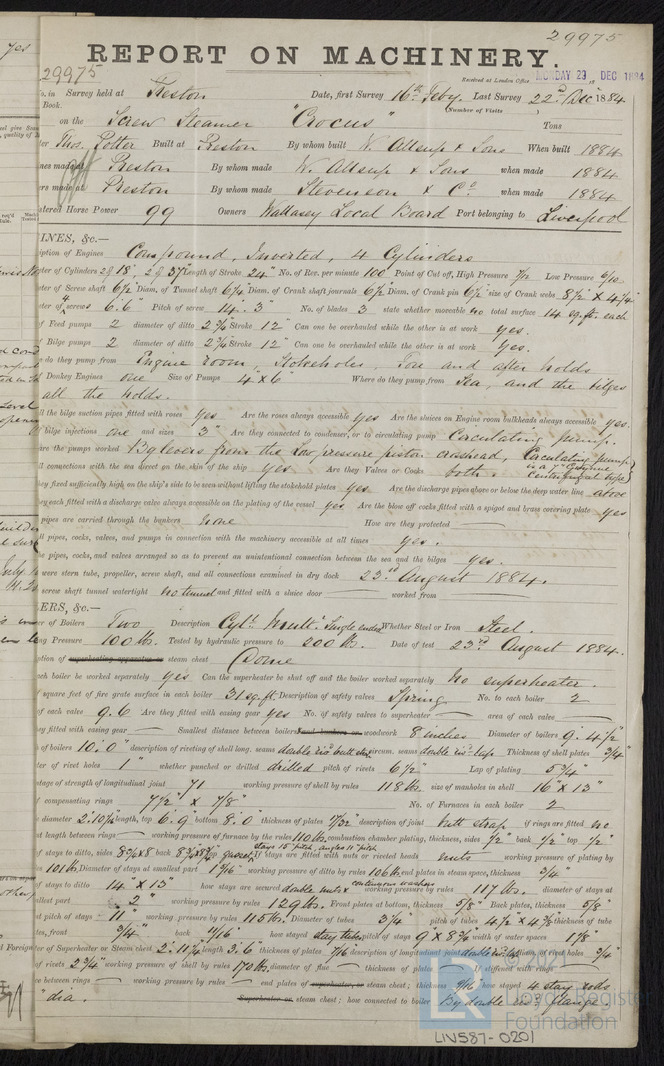 29975
REPORT ON MACHINERY.
29975
Received at London Office MONDAY 29 DEC 1884
o. in Survey held at Preston Date, first Survey 16th Feby. Last Survey 22nd Dec 1884
Book. (Number of Visits
on the Screw Steamer "Crocus" Tons
ter Thos. Potter Built at Preston By whom built W. Allsup & Sons When built 1884
nes made at Preston By whom made W. Allsup & Sons when made 1884
ers made at Preston By whom made Stevenson & Co when made 1884
stered Horse Power 99 Owners Wallasey Local Board Port belonging to Liverpool
INES, &c.—
iption of Engines Compound, Inverted, 4 Cylinders
ter of Cylinders 2 of 18", 2 of 37" Length of Stroke 24" No. of Rev. per minute 100 Point of Cut off, High Pressure 7/12 Low Pressure 6/10
ter of Screw shaft 6 1/2 Diam. of Tunnel shaft 6 1/4 Diam. of Crank shaft journals 6 1/2 Diam. of Crank pin 6 1/2 size of Crank webs 8 1/2 × 4 1/4
ter of 4 screws 6.6" Pitch of screw 14.3" No. of blades 3 state whether moveable no total surface 14 sq. ft. each
of Feed pumps 2 diameter of ditto 2 3/4 Stroke 12" Can one be overhauled while the other is at work yes.
f Bilge pumps 2 diameter of ditto 2 3/4 Stroke 12" Can one be overhauled while the other is at work yes.
e do they pump from Engine room, Stokeholes, Fore and after holds
f Donkey Engines one Size of Pumps 4 × 6" Where do they pump from Sea, and the bilges
all the holds.
ll the bilge suction pipes fitted with roses yes Are the roses always accessible yes Are the sluices on Engine room bulkheads always accessible yes.
f bilge injections one and sizes 3" Are they connected to condenser, or to circulating pump Circulating pump.
are the pumps worked By levers from the Low pressure piston crosshead, Circulating pump
is a 7" Gwynne centrifugal type
ll connections with the sea direct on the skin of the ship yes Are they Valves or Cocks both.
hey fixed sufficiently high on the ship's side to be seen without lifting the stokehold plates yes Are the discharge pipes above or below the deep water line above
ey each fitted with a discharge valve always accessible on the plating of the vessel yes Are the blow off cocks fitted with a spigot and brass covering plate yes
pipes are carried through the bunkers none How are they protected
ll pipes, cocks, valves, and pumps in connection with the machinery accessible at all times yes.
e pipes, cocks, and valves arranged so as to prevent an unintentional connection between the sea and the bilges yes.
were stern tube, propeller, screw shaft, and all connections examined in dry dock 23rd August 1884.
screw shaft tunnel watertight no tunnel and fitted with a sluice door worked from
ERS, &c.—
er of Boilers Two Description Cyl. Mult. Single ended Whether Steel or Iron Steel.
ng Pressure 100 lb. Tested by hydraulic pressure to 200 lb. Date of test 23rd August 1884.
ption of superheating apparatus or steam chest Dome
ach boiler be worked separately yes Can the superheater be shut off and the boiler worked separately No superheater.
f square feet of fire grate surface in each boiler 31 sq. ft Description of safety valves Spring No. to each boiler 2
of each valve 9.6 Are they fitted with easing gear yes No. of safety valves to superheater area of each valve
ey fitted with easing gear Smallest distance between boilers and bunkers or woodwork 8 inches Diameter of boilers 9'. 4 1/2"
h of boilers 10'. 0" description of riveting of shell long. seams double riv. butt strap circum. seams double riv. lap Thickness of shell plates 3/4"
ter of rivet holes 1" whether punched or drilled drilled pitch of rivets 6 1/2" Lap of plating 5 3/4"
ntage of strength of longitudinal joint 71 working pressure of shell by rules 118 lb. size of manholes in shell 16" × 13"
f compensating rings 7 1/2" × 7/8" No. of Furnaces in each boiler 2
e diameter 2'.10 1/2 length, top 6'.9 bottom 8'.0 thickness of plates 17/32" description of joint butt strap if rings are fitted no
st length between rings working pressure of furnace by the rules 110 lb combustion chamber plating, thickness, sides 1/2" back 1/2" top 1/2"
stays 15" pitch, angles 11" pitch
of stays to ditto, sides 8 3/4 × 8 back 8 3/4 × 8 3/4 top gusset, If stays are fitted with nuts or riveted heads nuts working pressure of plating by
101 lb. Diameter of stays at smallest part 1 9/16" working pressure of ditto by rules 106 lb end plates in steam space, thickness 3/4"
of stays to ditto 14" × 13" how stays are secured double nuts & contiguous washers working pressure by rules 117 lb. diameter of stays at
llest part 2" working pressure by rules 129 lb. Front plates at bottom, thickness 5/8" Back plates, thickness 5/8"
st pitch of stays 11" working pressure by rules 115 lb. Diameter of tubes 3 1/4" pitch of tubes 4 1/2" × 4 3/8 thickness of tube
es, front 3/4" back 11/16" how stayed stay tubes pitch of stays 9" × 8 3/4 width of water spaces 1 1/8"
er of Superheater or Steam chest 2'.11 1/4 length 3'.6" thickness of plates 7/16 description of longitudinal joint double riv. lap diam. of rivet holes 3/4"
of rivets 2 3/4" working pressure of shell by rules 170 lb. diameter of flue thickness of plates If stiffened with rings
ce between rings working pressure by rules end plates of superheater, or steam chest; thickness 9/16 how stayed 4 stay rods
" dia. Superheater or steam chest; how connected to boiler By double riv. flange.
LR Lloyd's Register Foundation
LNS87-0201